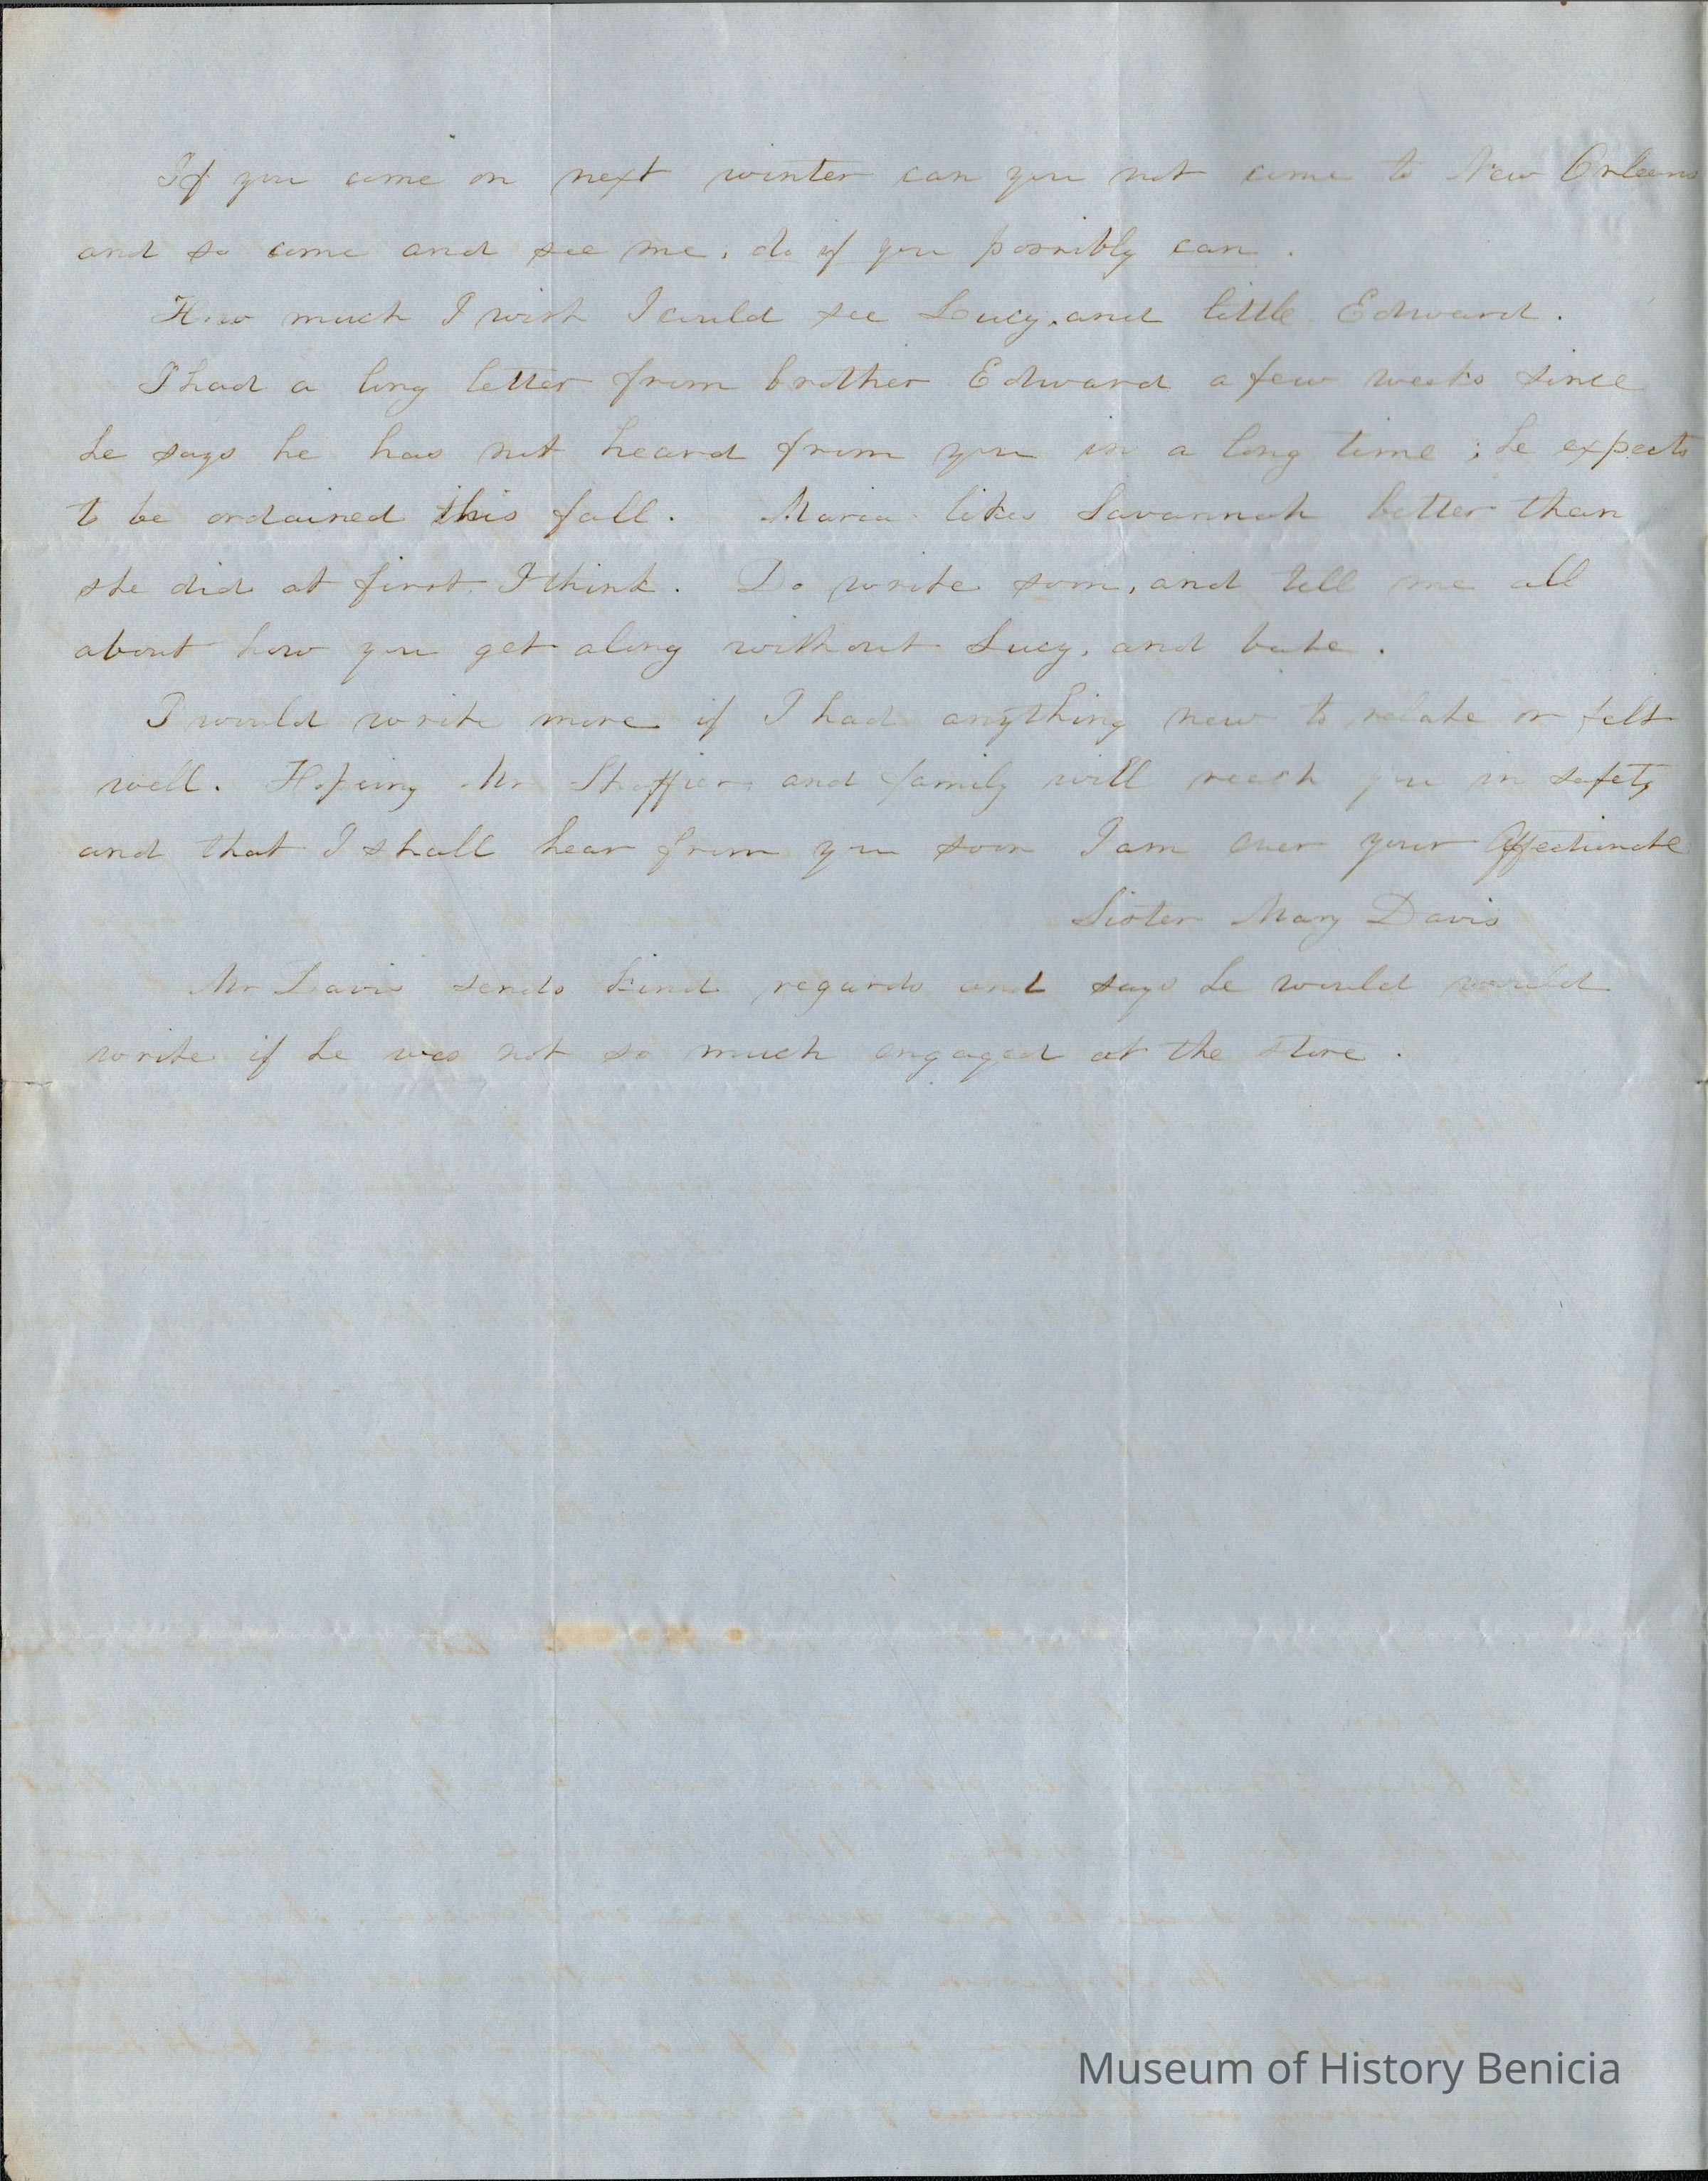 If you come on next winter can you not come to New Orleans
and so come and see me; do if you possibly can.
How much I wish I could see Lucy, and little Edward.
I had a long letter from brother Edward a few weeks since
he says he has not heard from you in a long time; he expects
to be ordained this fall. Maria likes Savannah better than
she did at first, I think. Do write soon, and tell me all
about how you get along without Lucy, and babe.
I would write more if I had anything new to relate or felt
well. Hopeing Mr and family will reach you in safety
and that I shall hear from you soon I am ever your Affectionate
Sister Mary Davis
Mr Davis sends kind regards and says he would would
write if he was not so much engaged at the store.
Museum of History Benicia